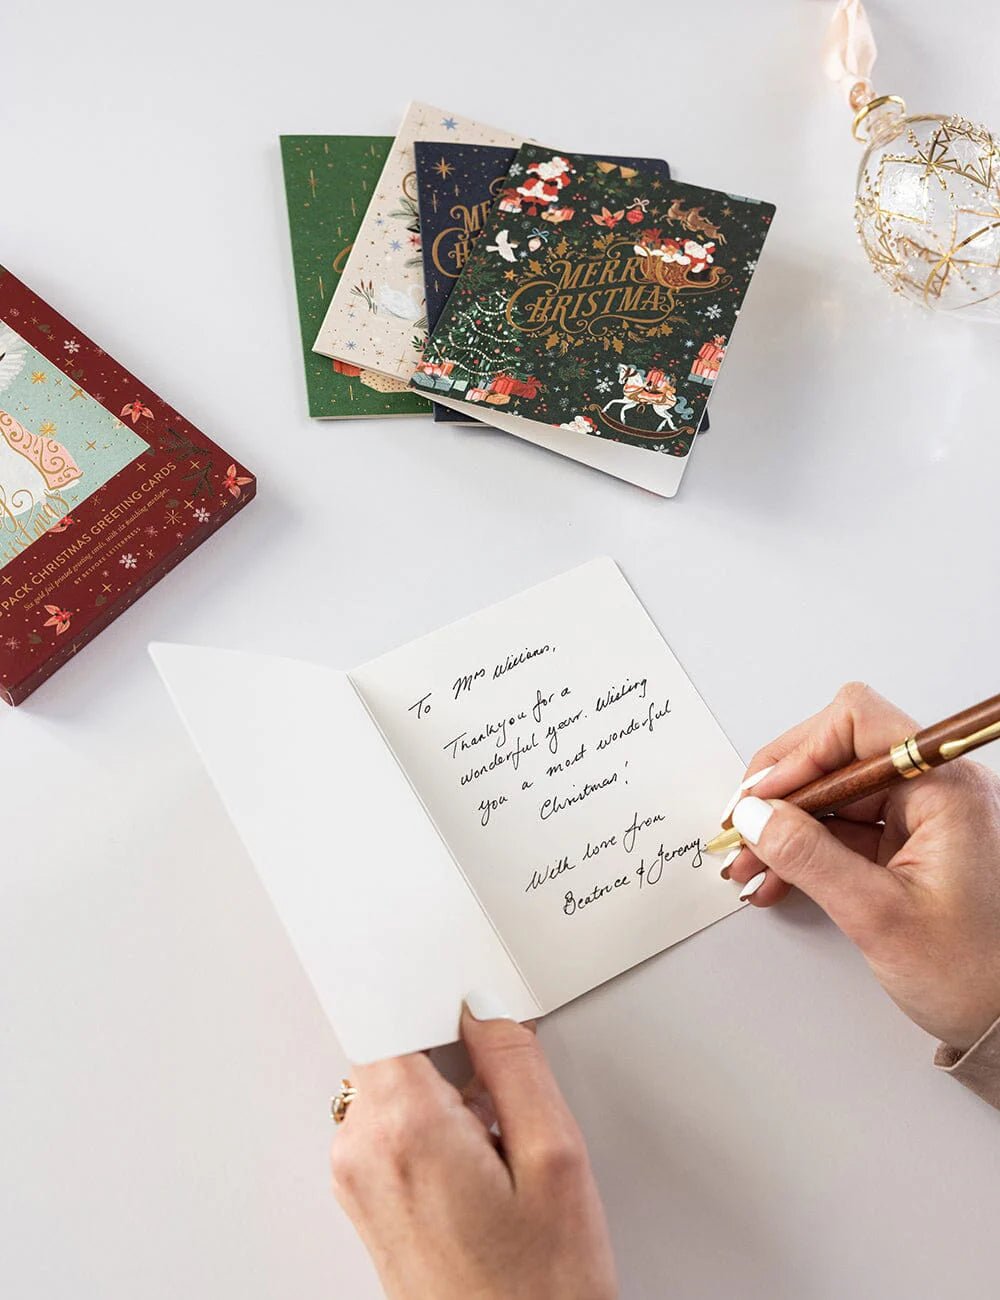 MERRY
CHRISTMAS
ME
CH
PACK CHRISTMAS GREETING CARDS
Six gold foil printed greeting cards, with six matching envelopes
BY BESPOKE LETTERPRESS
To Mrs Williams,
Thankyou for a
wonderful year. Wishing
you a most wonderful
Christmas!
With love from
Beatrice & Jeremy.